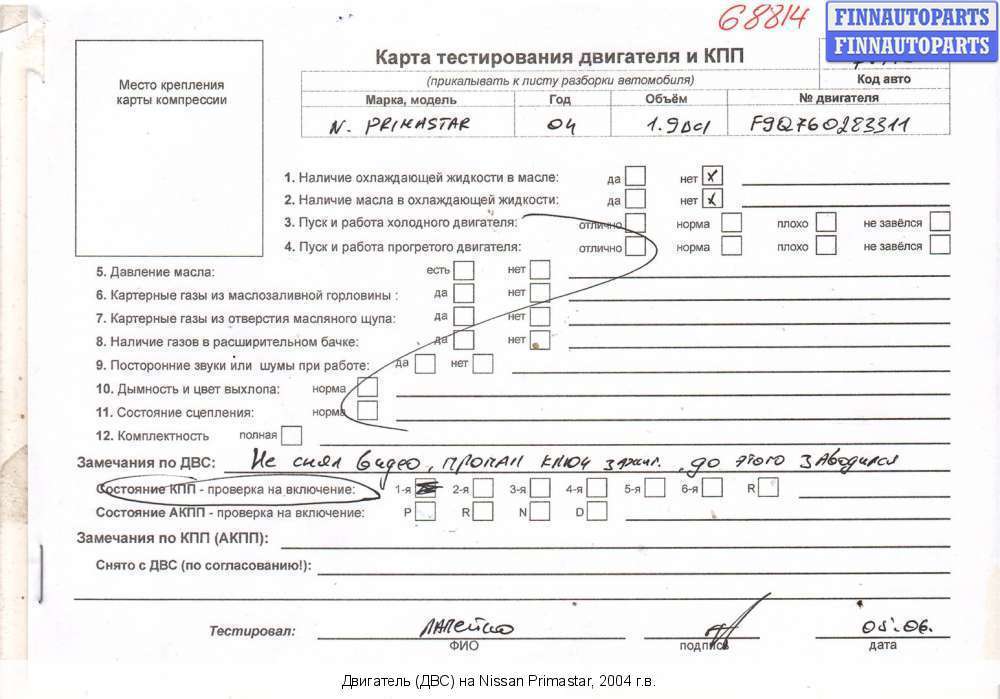 68814
FINNAUTOPARTS
FINNAUTOPARTS
Карта тестирования двигателя и КПП
(прикалывать к листу разборки автомобиля)
Код авто
Место крепления
карты компрессии
Марка, модель Год Объём № двигателя
N. PRIMASTAR 04 1.9 DCI F9Q760283311
1. Наличие охлаждающей жидкости в масле: да нет x
2. Наличие масла в охлаждающей жидкости: да нет x
3. Пуск и работа холодного двигателя: отлично норма плохо не завёлся
4. Пуск и работа прогретого двигателя: отлично норма плохо не завёлся
5. Давление масла: есть нет
6. Картерные газы из маслозаливной горловины : да нет
7. Картерные газы из отверстия масляного щупа: да нет
8. Наличие газов в расширительном бачке: да нет
9. Посторонние звуки или шумы при работе: да нет
10. Дымность и цвет выхлопа: норма
11. Состояние сцепления: норма
12. Комплектность полная
Замечания по ДВС: Не снял видео, пропал ключ зажиг. , до этого заводился
Состояние КПП - проверка на включение: 1-я 2-я 3-я 4-я 5-я 6-я R
Состояние АКПП - проверка на включение: P R N D
Замечания по КПП (АКПП):
Снято с ДВС (по согласованию!):
Тестировал: 05.06.
ФИО подпись дата
Двигатель (ДВС) на Nissan Primastar, 2004 г.в.